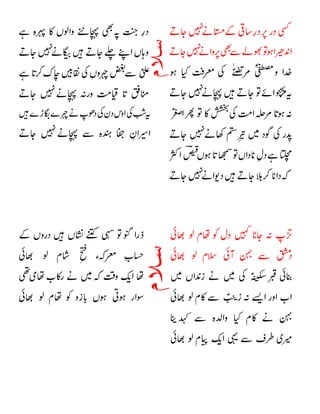 سلام
کسی در پر یا سر دربار مستانے نہیں جاتے
اندھیرا ہو تو بھولے سے بھی پروانے نہیں جاتے
خدا و مصطفیٰؐ مرتضیٰؑ کی معرفت کیا ہو
یہ پہچنوائے تو جاتے ہیں پہچانے نہیں جاتے
نہ ہوتا مرحلہ امت کی بخشش کا تو پھر اصغرؑ
پدر کی گود میں تیر ستم کھانے نہیں جاتے
مچلتا ہے دلِ ناداں تو سمجھاتا ہوں فیضؔ اکثر
کہ دانا کربلا جاتے ہیں دیوانے نہیں جاتے
در جنت پہ بھی پہچاننے والوں کا پہرہ ہے
وہاں اپنے چلے جاتے ہیں بیگانے نہیں جاتے
علیؑ سے بغض چہروں کی نقابیں چاک کرتا ہے
منافق تا قیامت ورنہ پہچانے نہیں جاتے
یہ شب کی اوس دن کی دھوپ نے چہرے بگاڑے ہیں
اسیرانِ جفا ہندہ سے پہچانے نہیں جاتے
سلام
تڑپ نہ جانا کہیں دل کو تھام لو بھائی
دمشق سے بہن آئی سلام لو بھائی
بنائی قبر سکینہؑ کی میں نے زنداں میں
اب اور ایسے نہ زینبؑ سے کام لو بھائی
بہن نے کام کیا والدہ سے کہہ دینا
میری طرف سے یہی ایک پیام لو بھائی
ذرا گنو تو سہی کتنے نشاں ہیں دروں کے
حساب معرکہء فتح شام لو بھائی
تھا ایک وقت کہ میں نے رکاب تھامی تھی
سوار ہوتی ہوں بازو کو تھام لو بھائی